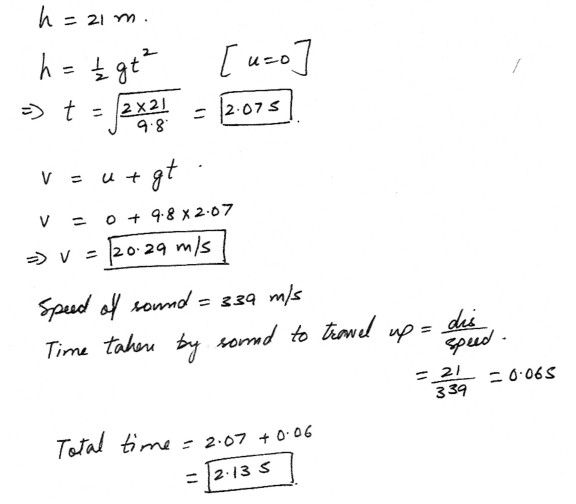 h = 21 m.
h = 1/2 gt² [u=0]
⇒ t = √(2×21/9.8) = 2.07 s
v = u + gt.
v = 0 + 9.8 × 2.07
⇒ v = 20.29 m/s
Speed of sound = 339 m/s
Time taken by sound to travel up = dis/speed.
= 21/339 = 0.06 s
Total time = 2.07 + 0.06
= 2.13 s